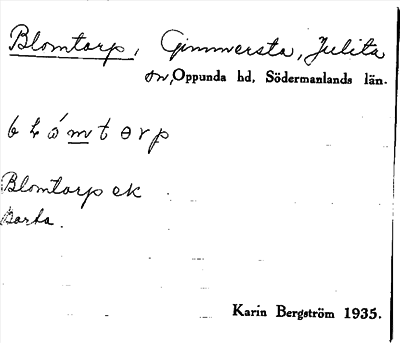 Blomtorp, Gimmersta, Julita
sn, Oppunda hd, Södermanlands län.
Blomtorp ek
Karin Bergström 1935.